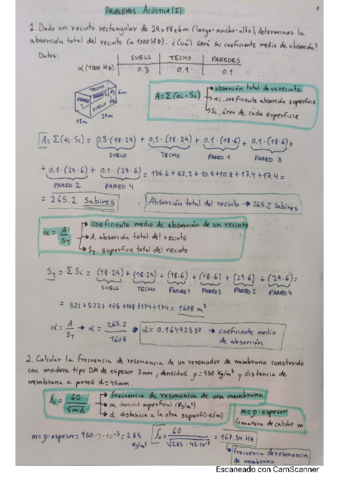 PROBLEMAS ACÚSTICA (I)
1. Dado un recinto rectangular de 29x18x6m (largo-ancho-alto), determinar la
absorción total del recinto (a 1000 Hz). ¿Cuál será su coeficiente medio de absorción?
Datos:
SUELO TECHO PAREDES
α (1000 Hz) 0.3 0.1 0.1
TECHO
PARED 1
6m
18m
29m
A = Σ(αi·Si)
absorción total de un recinto
αi, coeficiente absorción superficie
Si, área de cada superficie
A = Σ(αi·Si) = 0,3·(18·29) + 0,1·(18·29) + 0,1·(18·6) + 0,1·(18·6) +
SUELO TECHO PARED 1 PARED 3
+ 0,1·(29·6) + 0,1·(29·6) = 156.6 + 52.2 + 10.8 + 10.8 + 17.4 + 17.4 =
PARED 2 PARED 4
= 265.2 Sabines
Absorción total del recinto → 265.2 Sabines
α = A/ST
coeficiente medio de absorción de un recinto
A, absorción total del recinto
ST, superficie total del recinto
ST = Σ Si = (18·29) + (18·29) + (18·6) + (18·6) + (29·6) + (29·6) =
SUELO TECHO PARED 1 PARED 3 PARED 2 PARED 4
= 522 + 522 + 108 + 108 + 174 + 174 = 1608 m²
α = A/ST → α = 265.2/1608 → α = 0.16492537 → coeficiente medio
de absorción
2. Calcular la frecuencia de resonancia de un resonador de membrana construido
con madera tipo DM de espesor 3mm, densidad ρ = 950 Kg/m³ y distancia
de membrana a pared d = 45mm.
f0 = 60/√md
frecuencia de resonancia de una membrana
m, densidad superficial (Kg/m²)
d, distancia a la otra superficie (m)
m = ρ·espesor
manera de calcular m
m = ρ·espesor = 950·3·10⁻³ = 2.85 Kg/m²
f0 = 60/√2.85·45·10⁻³ = 167.54 Hz
frecuencia de resonancia
de membrana
Escaneado con CamScanner